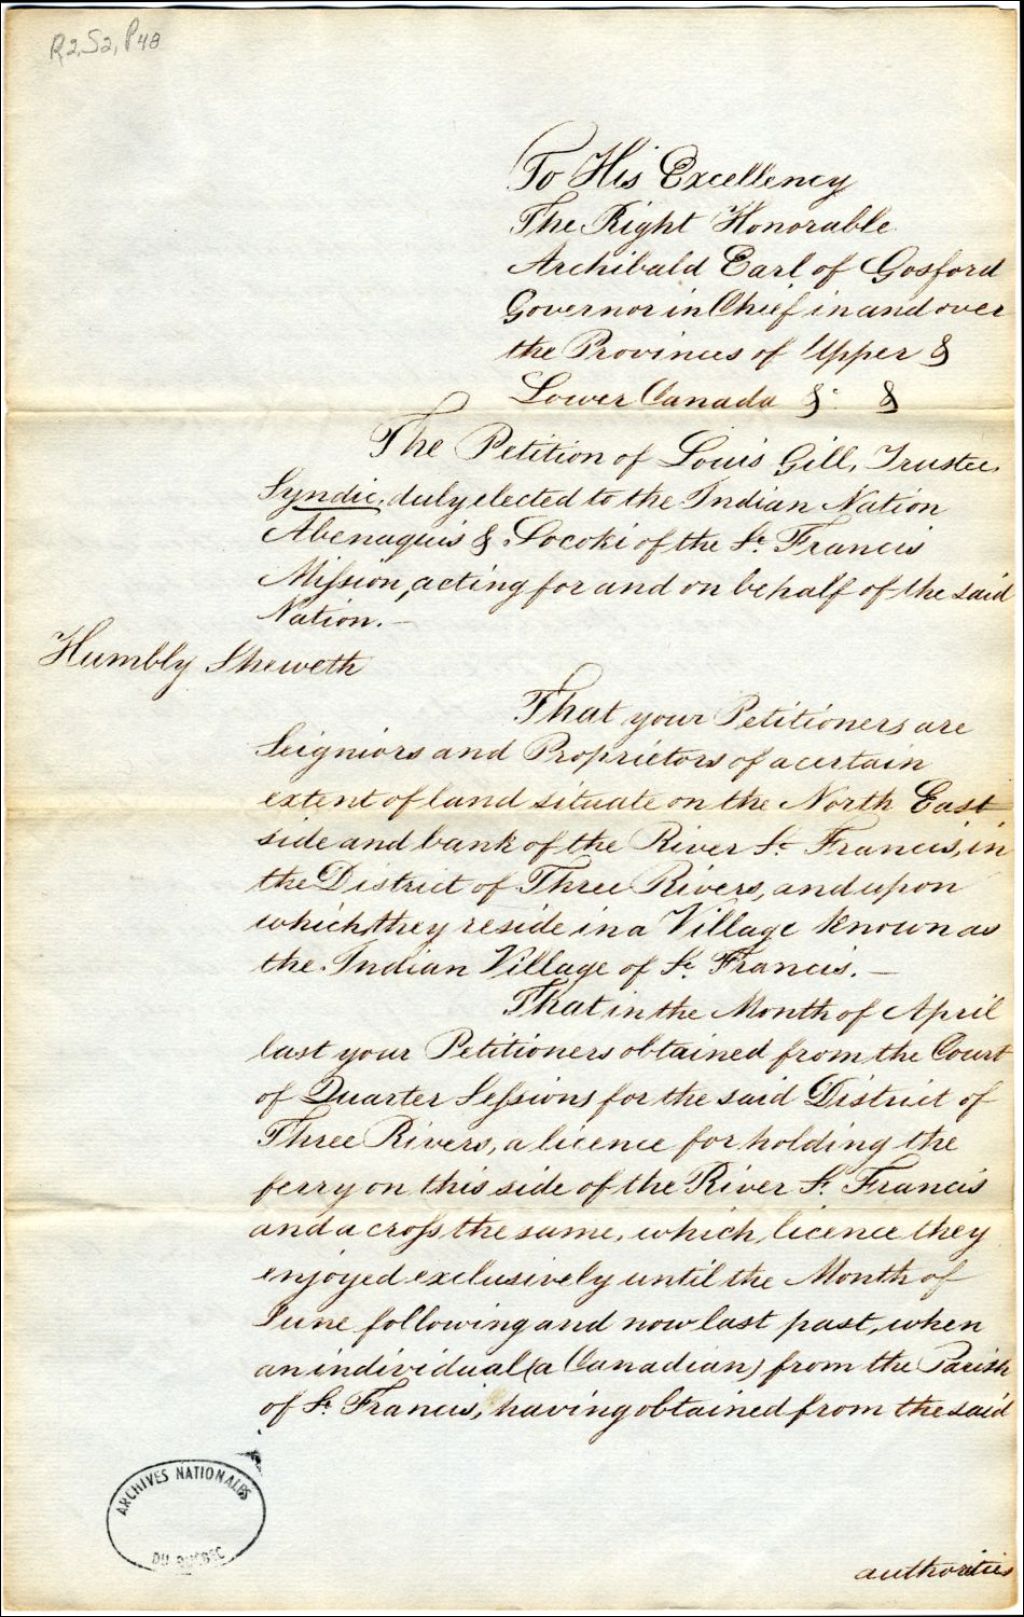 R2, S2, P48
To His Excellency
The Right Honorable
Archibald Earl of Gosford
Governor in Chief in and over
the Provinces of Upper &
Lower Canada &c &
The Petition of Louis Gill, Trustee,
Syndic, duly elected to the Indian Nation
Abenaquis & Socoki of the St. Francis
Mission, acting for and on behalf of the said
Nation. —
Humbly Sheweth
That your Petitioners are
Seigniors and Proprietors of a certain
extent of land situate on the North East
side and bank of the River St. Francis, in
the District of Three Rivers, and upon
which they reside in a Village known as
the Indian Village of St. Francis. —
That in the Month of April
last your Petitioners obtained from the Court
of Quarter Sessions for the said District of
Three Rivers, a licence for holding the
ferry on this side of the River St. Francis
and across the same, which licence they
enjoyed exclusively until the Month of
June following and now last past, when
an individual (a Canadian) from the Parish
of St. Francis, having obtained from the said
ARCHIVES NATIONALES
DU QUEBEC
authorities